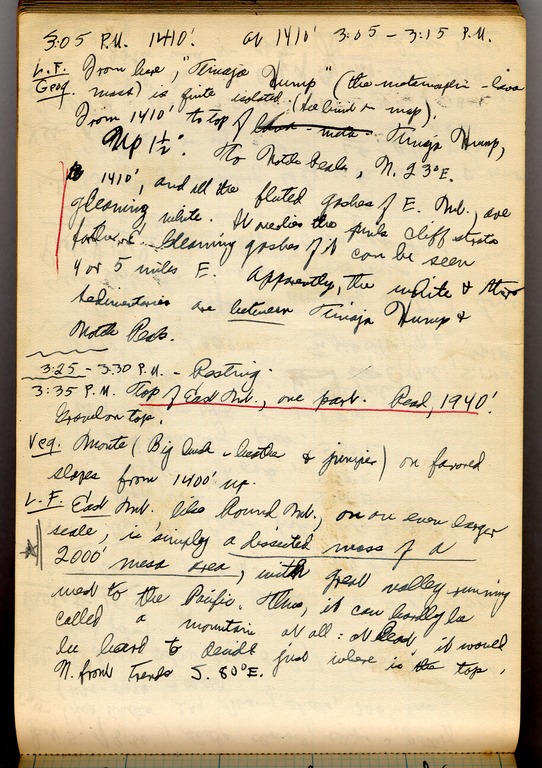 3:05 P.M. 1410' at 1410' 3:05 - 3:15 P.M.
L.F. From here, "Tinaja Hump" (the metamorphic - lava
Geog. mass) is quite isolated. (See bind & map).
From 1410' to top of Tinaja Hump,
Up 1½°. To North Peak, N. 23°E.
1410', and all the fluted gashes of E. Mt., are
gleaming white. It overlies the pink cliff strata
further E. Gleaming gashes of it can be seen
4 or 5 miles E. Apparently, the white &
sedimentaries are between Tinaja Hump &
North Peak.
3:25 - 3:30 P.M. - Resting.
3:35 P.M. Top of East Mt., one part. Read, 1940'.
Gravel on top.
Veg. Monte (Big bush & juniper) on favored
slopes from 1400' up.
L.F. East Mt. like Round Mt., on an even larger
scale, is simply a dissected mass of a
2000' mesa area, with great valley running
west to the Pacific. Thus, it can hardly be
called a mountain at all: at least it would
be hard to decide just where is the top.
N. front trends S. 80°E.